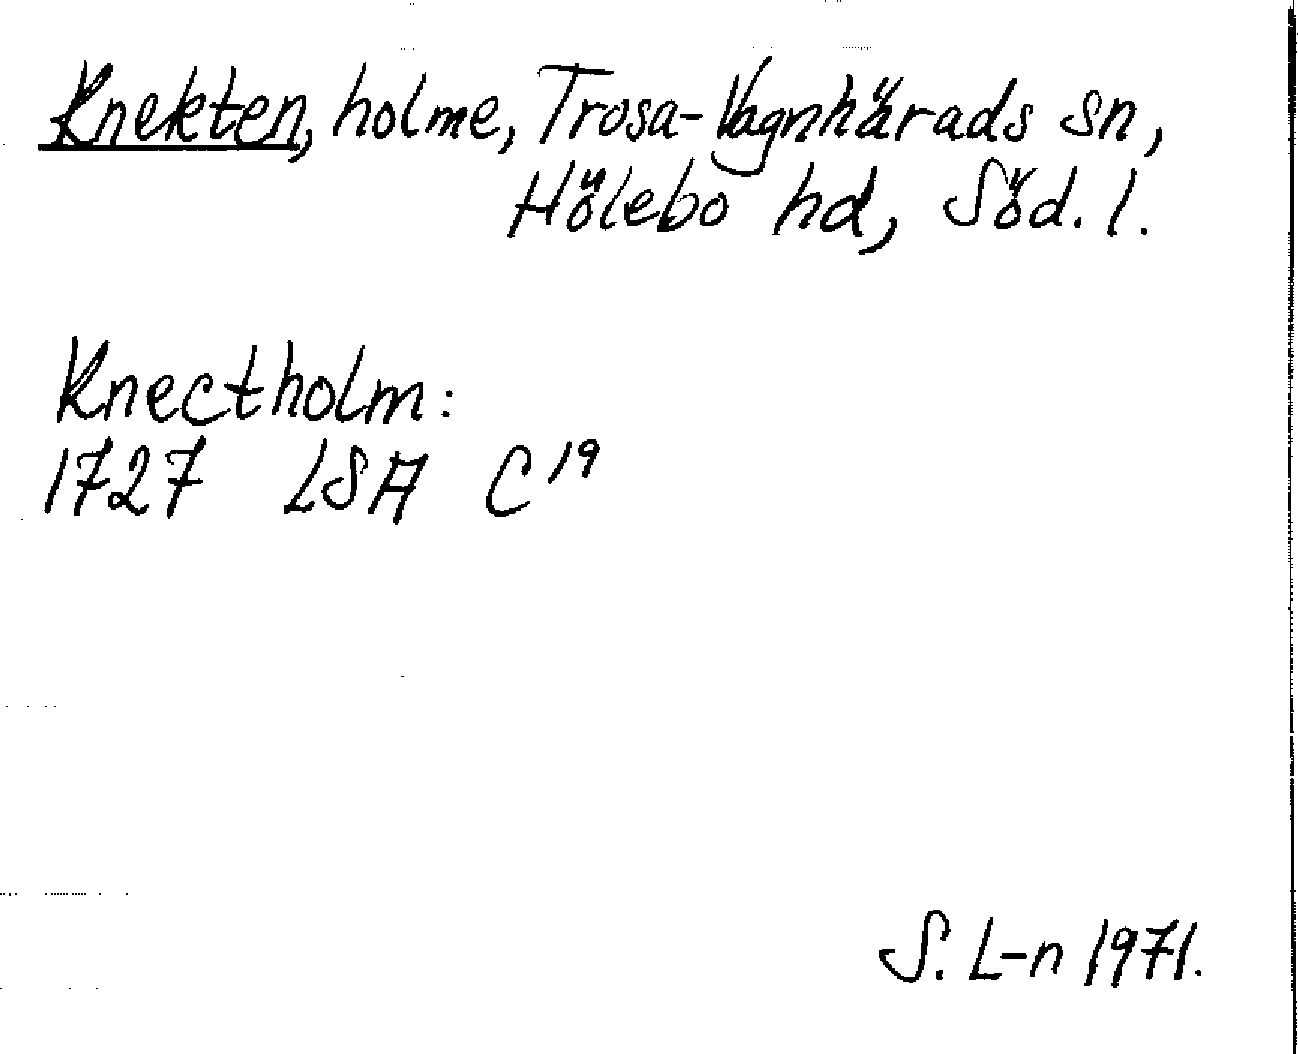 Knekten, holme, Trosa-Vagnhärads sn,
Hölebo hd, Söd. l.
Knectholm:
1727 LSA C¹⁹
S. L-n 1971.